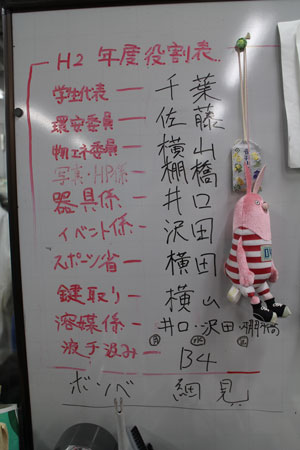 H2 年度役割表
学生代表 ー 千葉
環安委員 ー 佐藤
物エネ委員 ー 横山
写真・HP係 ー 棚橋
器具係 ー 井口
イベント係 ー 沢田
スポーツ省 ー 横田
鍵取り ー 横山
溶媒係 ー 井口・沢田・棚橋
液チ汲み ー B4
ボンベ 細見